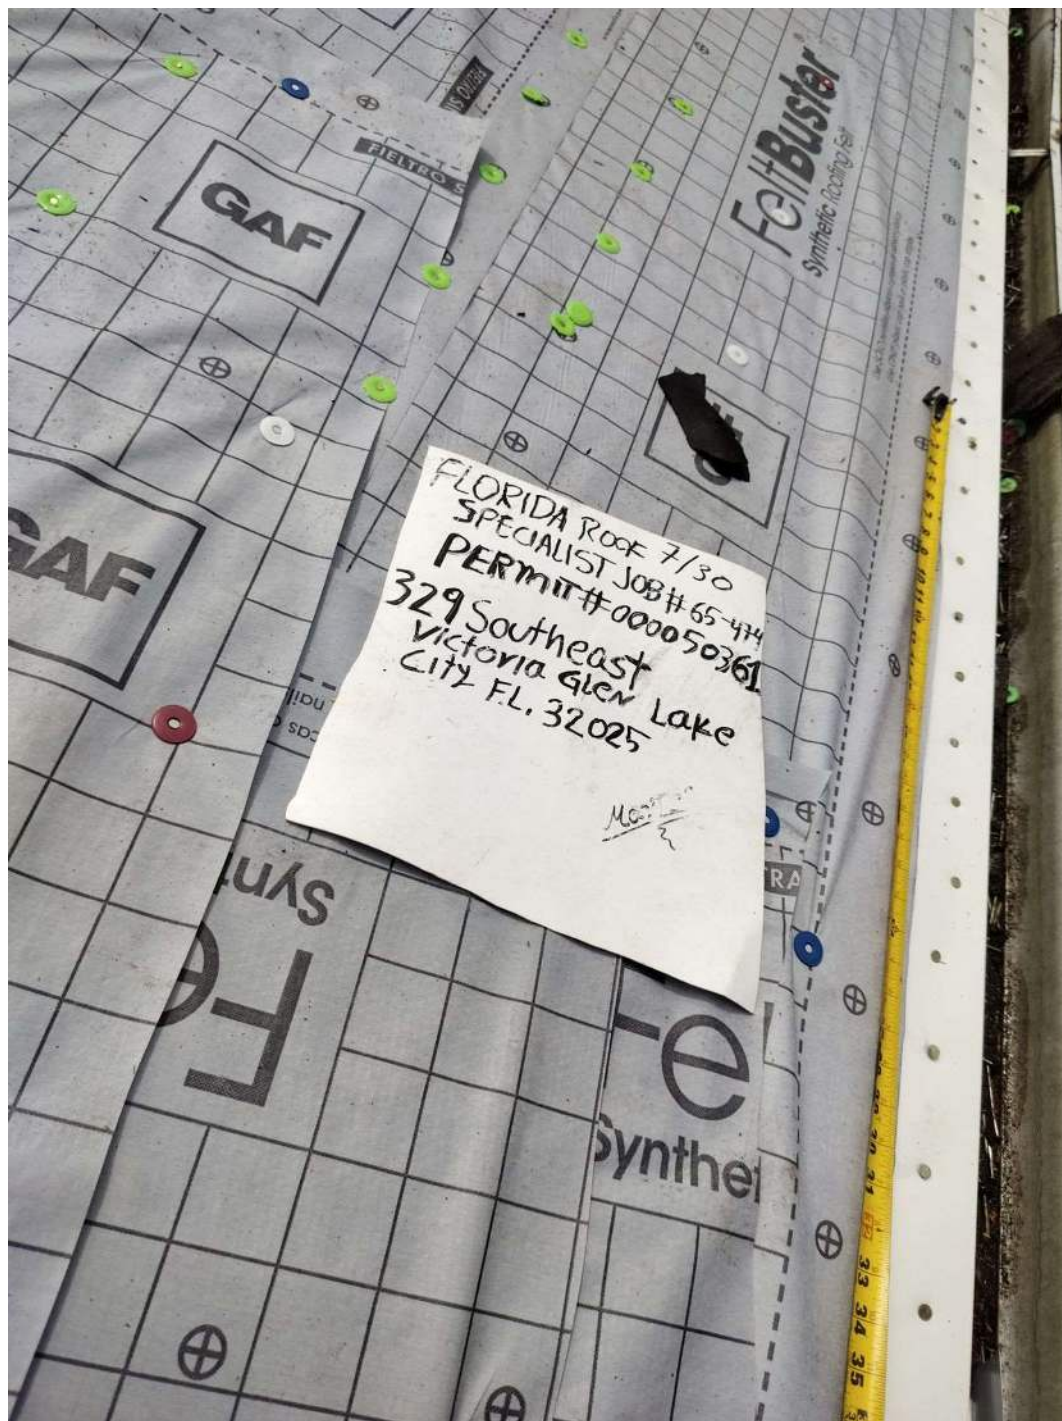 METRO S
FIELTRO S
GAF
FeltBuster
Synthetic Roofing Felt
GAF
FLORIDA ROOF 7/30
SPECIALIST JOB # 65-474
PERMIT # 000050361
329 Southeast
Victoria GLEN Lake
City F.L. 32025
Synt
Fe
TRA
Fe
Synthet
31
33
34
35